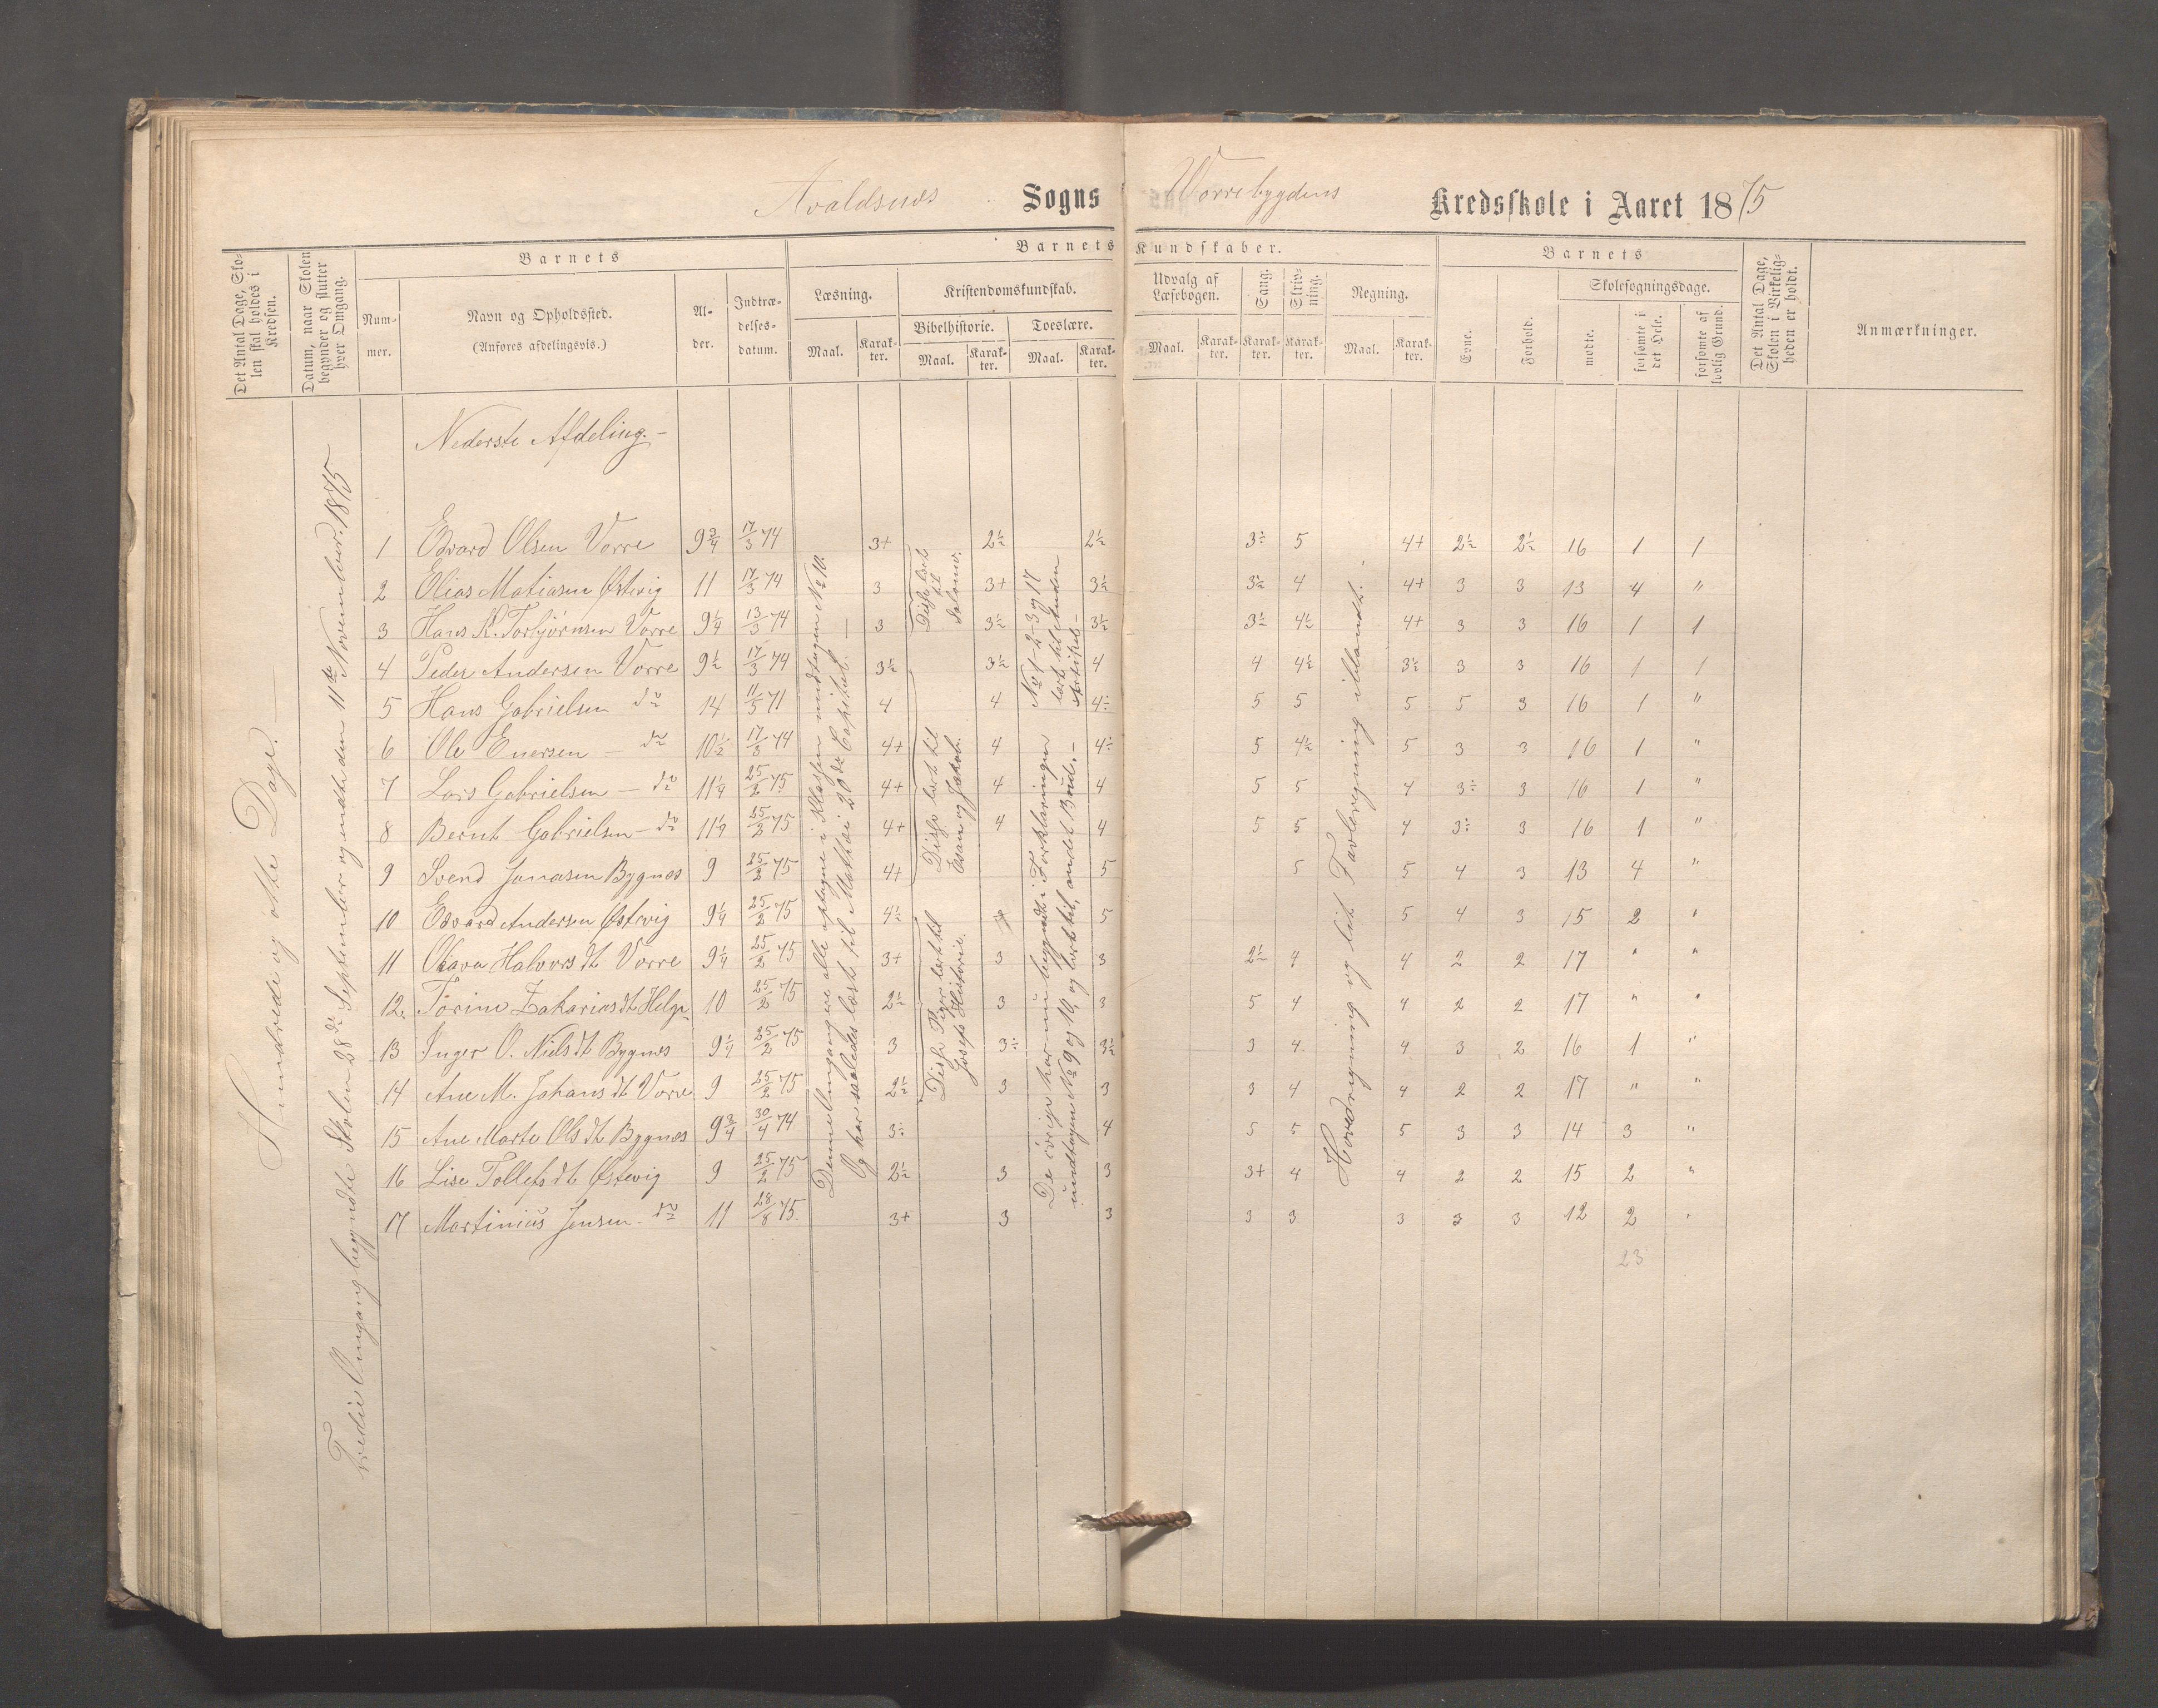 Avaldsnes Sogns Vorrebygdens Kredsskole i Aaret 1875
Det Antal Dage, Skolen skal holdes i Kredsen.
Datum, naar Skolen begynder og slutter hver Omgang.
Barnets
Nummer.
Navn og Opholdssted.
(Anføres afdelingsvis.)
Alder.
Indtrædelsesdatum.
Barnets Kundskaber.
Læsning.
Maal.
Karakter.
Kristendomskundskab.
Bibelhistorie.
Maal.
Karakter.
Troeslære.
Maal.
Karakter.
Udvalg af Læsebogen.
Maal.
Karakter.
Sang.
Karakter.
Skrivning.
Karakter.
Regning.
Maal.
Karakter.
Barnets
Evne.
Forhold.
Skolesøgningsdage.
mødte.
forsømte i det Hele.
forsømte af lovlig Grund.
Det Antal Dage, Skolen i Virkeligheden er holdt.
Anmærkninger.
Hundrede og otte Dage.
Tredie Omgang begyndte Skolen 28de September og endte den 11te November 1875
Nederste Afdeling.
1 Edvard Olsen Vorre 9 3/4 17/3 74 3+ 2 1/2 2 1/2 3÷ 5 4+ 2 1/2 2 1/2 16 1 1
2 Elias Matiasen Østevig 11 17/3 74 3 3+ 3 1/2 3 1/2 4 4+ 3 3 13 4 "
3 Hans K. Torbjörnsen Vorre 9 1/4 13/3 74 3 3 1/2 3 1/2 3 1/2 4 1/2 4+ 3 3 16 1 1
4 Peder Andersen Vorre 9 1/2 17/3 74 3 1/2 3 1/2 4 4 4 1/2 3 1/2 3 3 16 1 1
5 Hans Gabrielsen do 14 11/5 71 4 4 4÷ 5 5 5 5 3 16 1 "
6 Ole Enersen do 10 1/2 17/3 74 4+ 4 4÷ 5 4 1/2 5 3 3 16 1 "
7 Lars Gabrielsen do 11 1/4 25/2 75 4+ 4 4 5 5 4 3÷ 3 16 1 "
8 Bernt Gabrielsen do 11 1/4 25/2 75 4+ 4 4 5 5 4 3÷ 3 16 1 "
9 Svend Jonasen Bygnes 9 25/2 75 4+ 5 5 5 4 3 13 4 "
10 Edvard Andersen Østevig 9 1/4 25/2 75 4 1/2 5 5 4 3 15 2 "
11 Olava Halvorsdt Vorre 9 1/4 25/2 75 3+ 3 3 2 1/2 4 4 2 2 17 " "
12. Tørine Zakariasdt Helgr. 10 25/2 75 2 1/2 3 3 5 4 4 2 2 17 " "
13 Inger O. Nielsdt Bygnes 9 1/4 25/2 75 3 3÷ 3 1/2 3 4 4 3 2 16 1 "
14 Ane M. Johansdt Vorre 9 25/2 75 2 1/2 3 3 3 4 4 2 2 17 " "
15 Ane Marte Olsdt Bygnes 9 3/4 30/4 74 3÷ 4 5 5 5 3 3 14 3 "
16 Lise Tollefsdt Østevig 9 25/2 75 2 1/2 3 3 3+ 4 4 2 2 15 2 "
17 Martinius Jensen do 11 28/8 75. 3+ 3 3 3 3 3 3 3 12 2 "
23
Denne Omgang ere alle optagne i Klassen undtagen No 10.
Og har saaledes læst til Mathæi 20de Capitel.
Disse læst til Salomo.
Disse lært til Esau og Jakob.
Disse Piger lært til Josefs Historie.
No 1-2-3 og 17 lært til Anden Artikel
De övrige har nu begyndt i Forklaringen undtagen No 9 og 10, og lært til andet Bud.
Hovedregning og lidt Tavleregning iblandt.